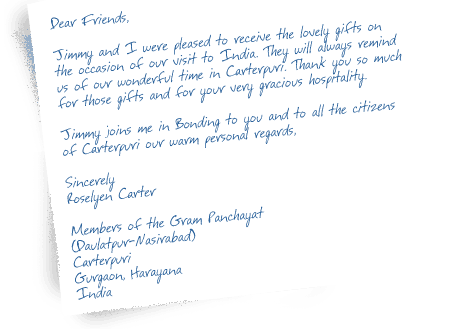 Dear Friends,
Jimmy and I were pleased to receive the lovely gifts on
the occasion of our visit to India. They will always remind
us of our wonderful time in Carterpuri. Thank you so much
for those gifts and for your very gracious hosptality.
Jimmy joins me in Bonding to you and to all the citizens
of Carterpuri our warm personal regards,
Sincerely
Roselyen Carter
Members of the Gram Panchayat
(Daulatpur-Nasirabad)
Carterpuri
Gurgaon, Harayana
India